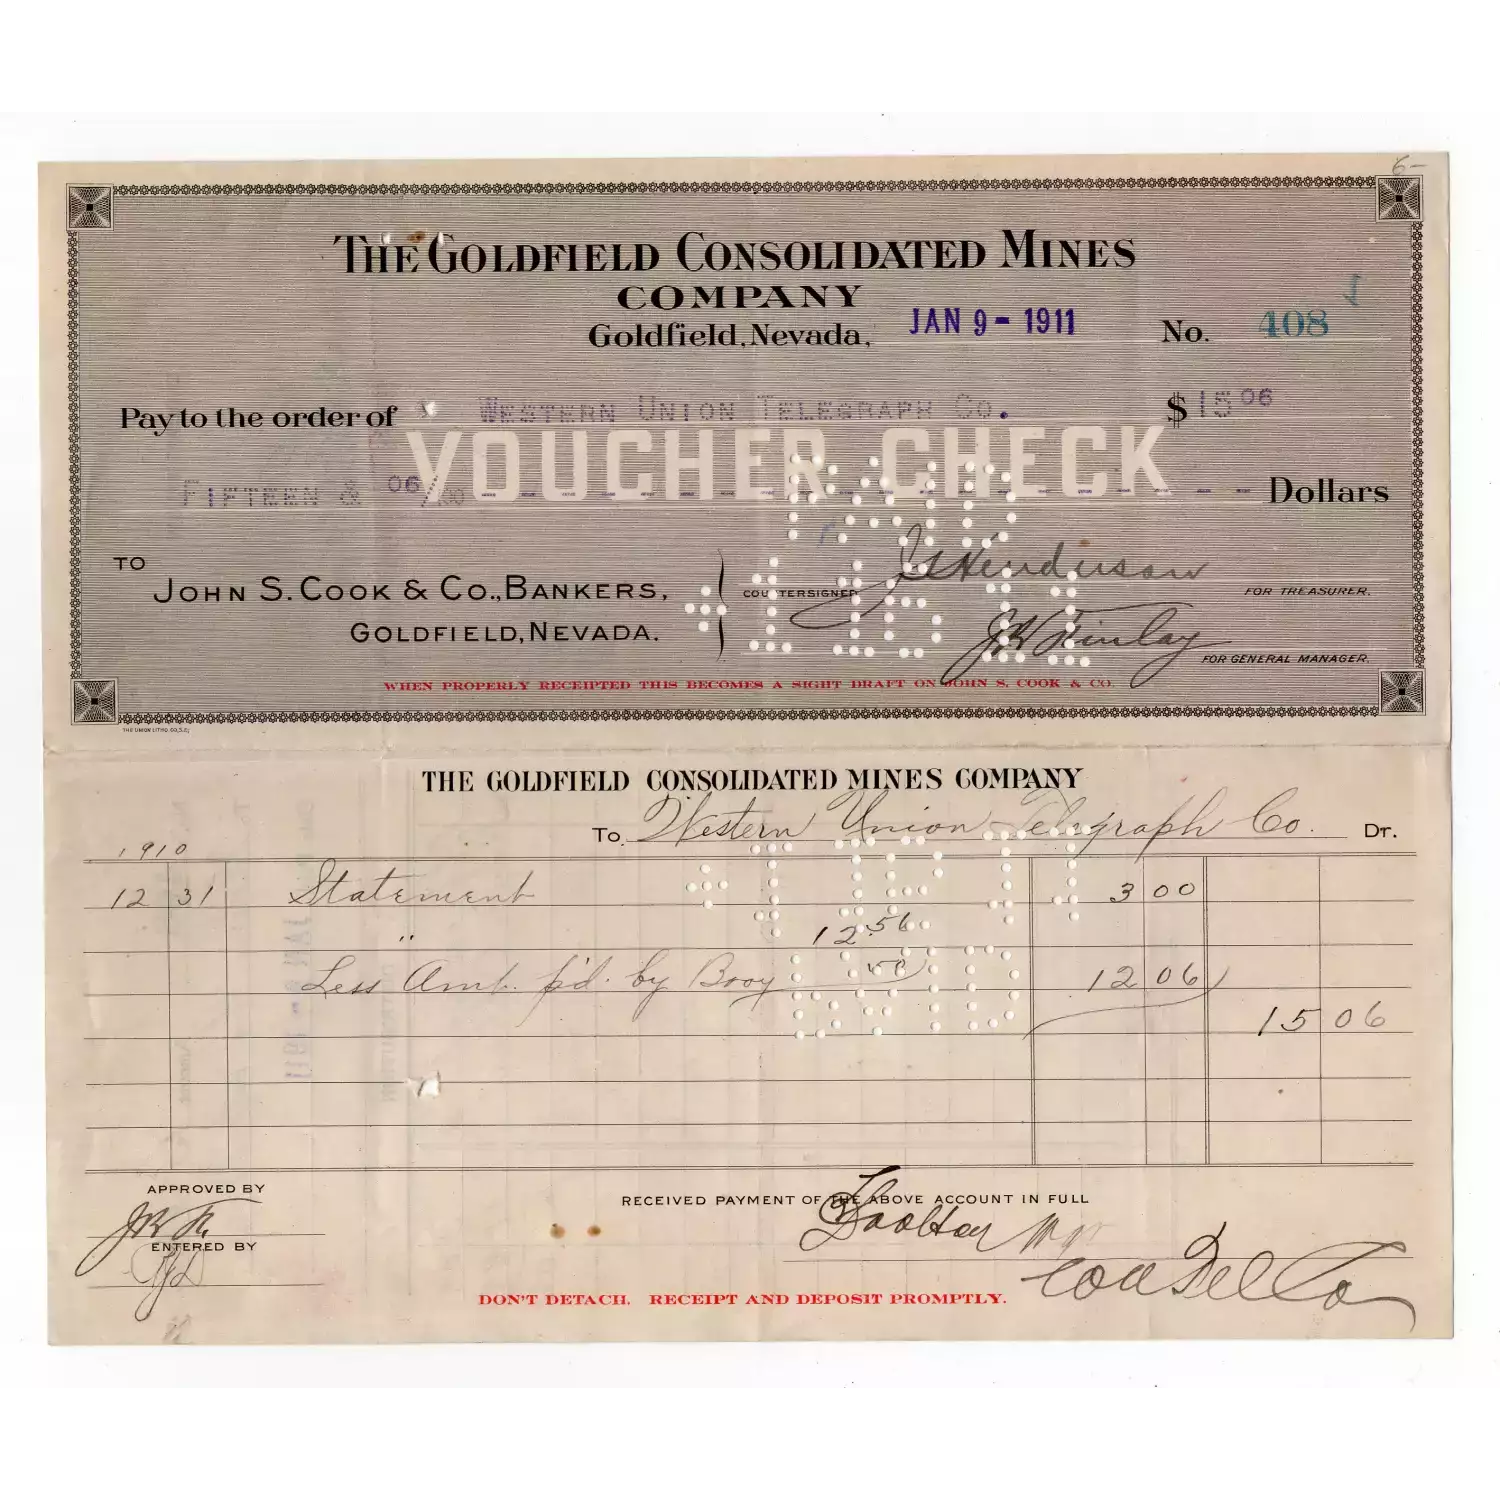 6-
THE GOLDFIELD CONSOLIDATED MINES
COMPANY
Goldfield, Nevada, JAN 9 - 1911 No. 408
Pay to the order of WESTERN UNION TELEGRAPH CO. $15 06
VOUCHER CHECK
FIFTEEN & 06/100 Dollars
TO
JOHN S. COOK & CO., BANKERS,
GOLDFIELD, NEVADA.
COUNTERSIGNED J S Henderson FOR TREASURER.
J H Finlay FOR GENERAL MANAGER.
WHEN PROPERLY RECEIPTED THIS BECOMES A SIGHT DRAFT ON JOHN S. COOK & CO.
THE UNION LITHO. CO., S.F.
THE GOLDFIELD CONSOLIDATED MINES COMPANY
To Western Union Telegraph Co. Dr.
1910
12 31 Statement 3 00
" 12 56
Less Amt. p'd. by Booy 50 12 06
15 06
APPROVED BY
RECEIVED PAYMENT OF THE ABOVE ACCOUNT IN FULL
ENTERED BY
Mgr
DON'T DETACH. RECEIPT AND DEPOSIT PROMPTLY.